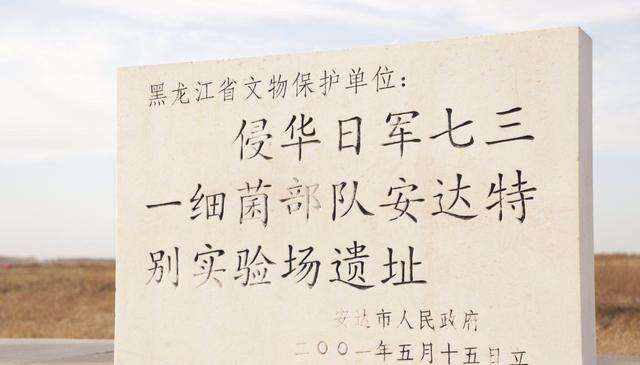 黑龙江省文物保护单位：
侵华日军七三
一细菌部队安达特
别实验场遗址
安达市人民政府
二〇〇一年五月十五日立